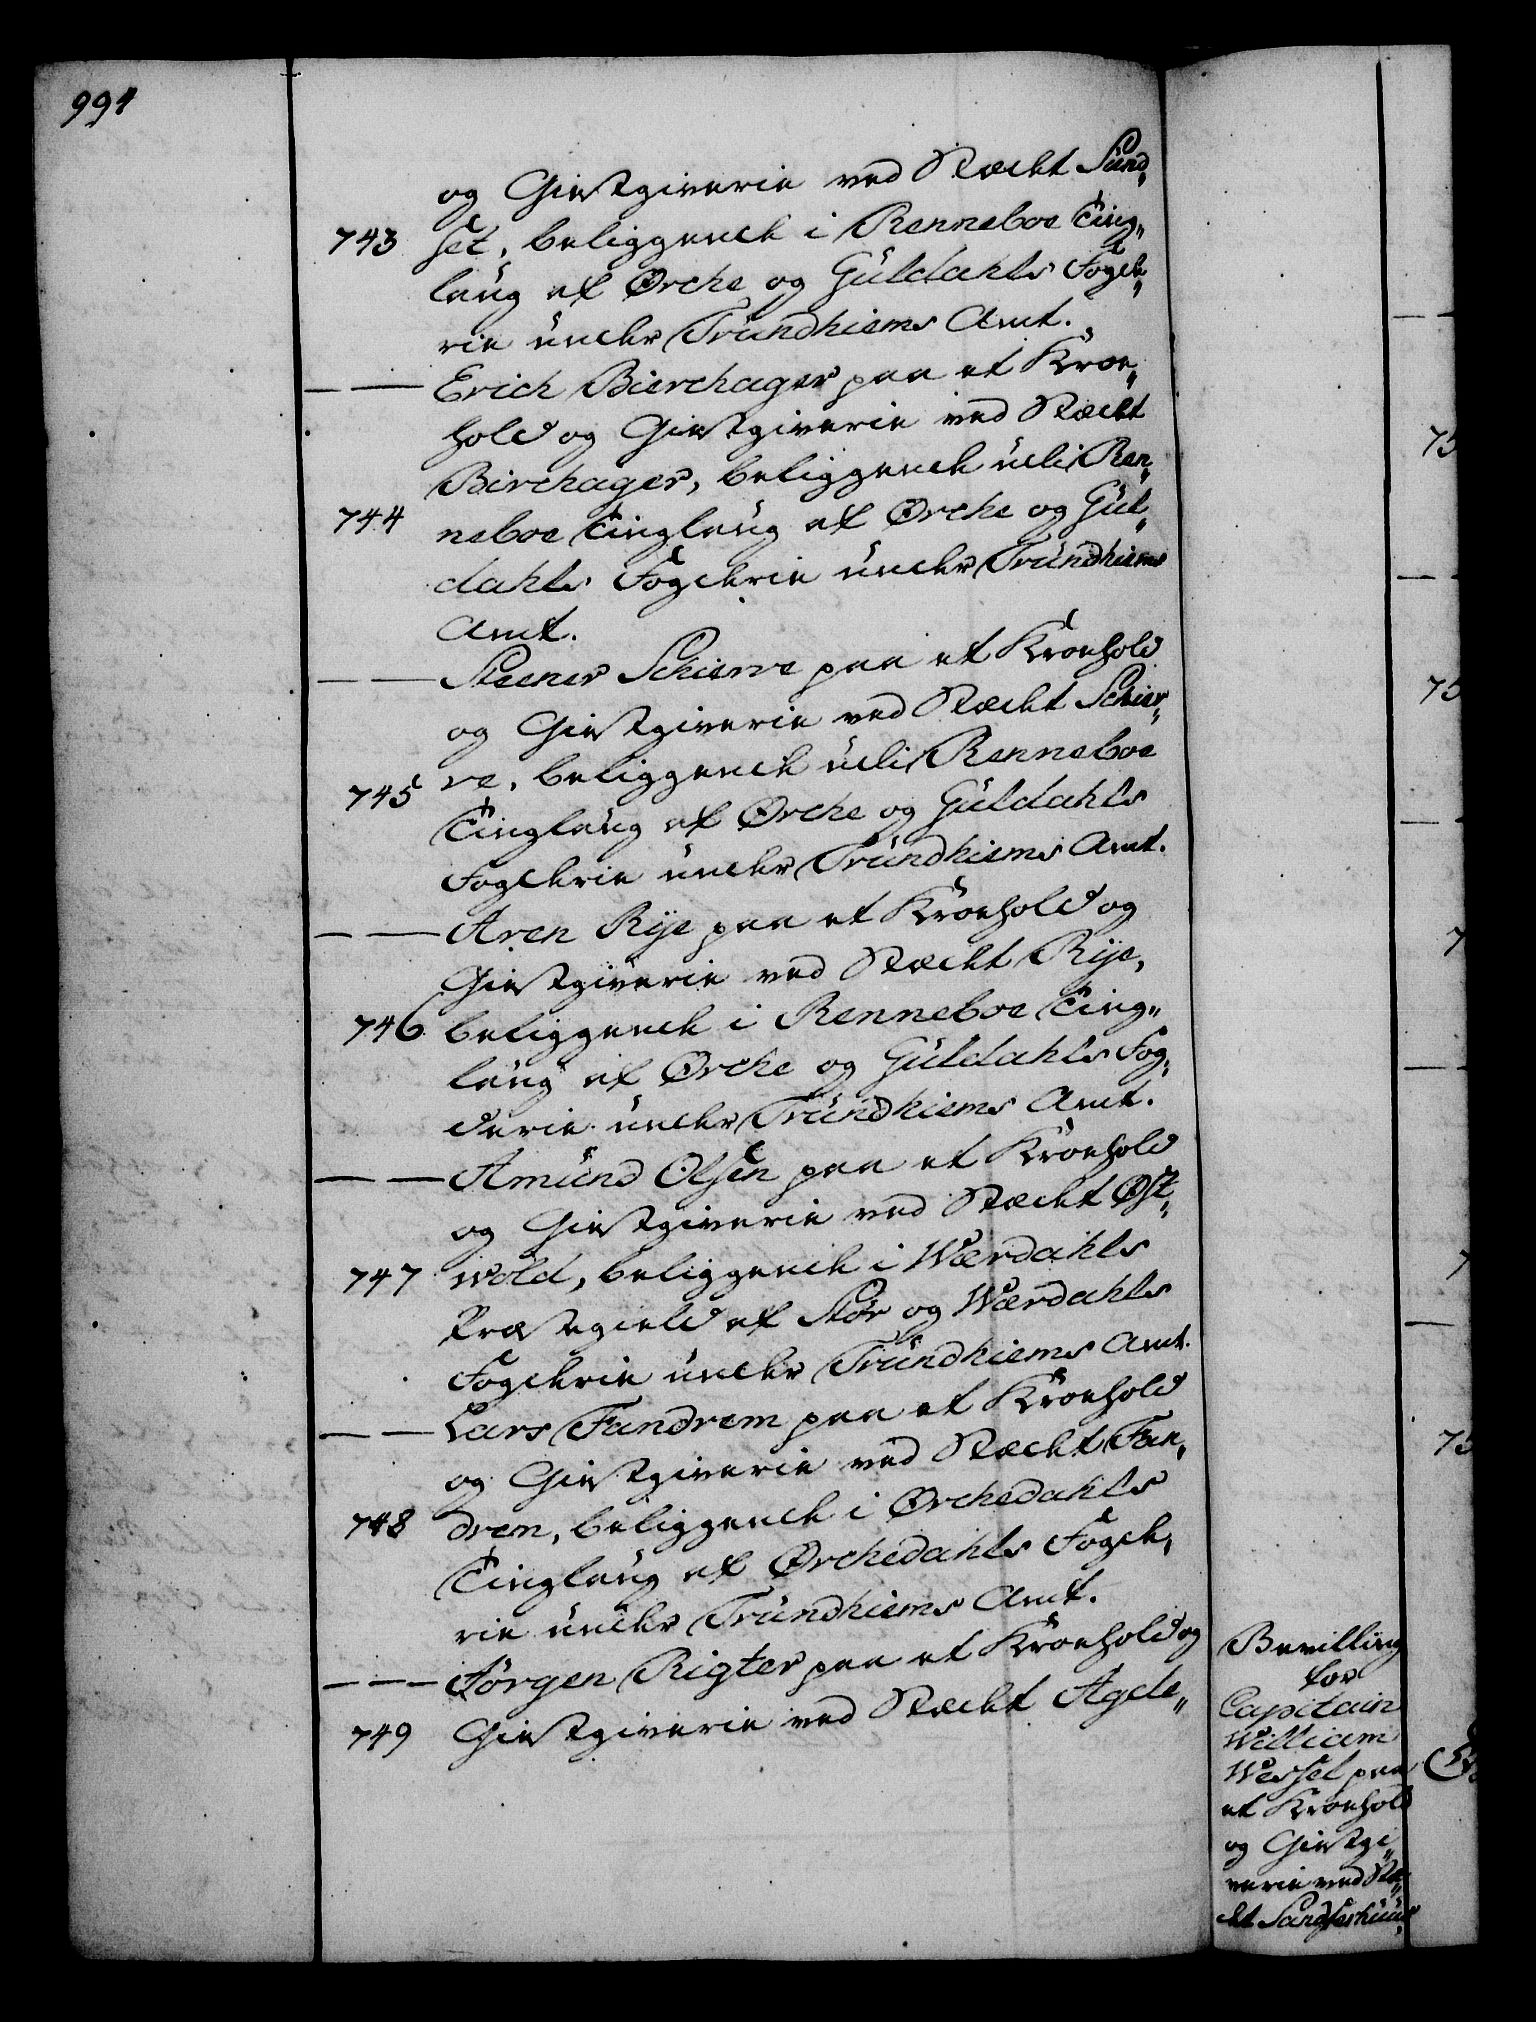 991
og Giestgiverie ved Stædet Sund„
743 set, beliggende i Renneboe Ting„
laug af Ørche og Guldahls Fogde„
rie under Trundhiems Amt.
— — Erich Bierchager paa et Kroe„
hold og Giestgiverie ved Stædet
Birchager, beliggende udi Ren„
744 neboe Tinglaug af Ørche og Gul„
dahls Fogderie under Trundhiems
Amt.
— — Steener Schierve paa et Kroehold
og Giestgiverie ved Stædet Schier„
745 ve, beliggende udi Renneboe
Tinglaug af Ørche og Guldahls
Fogderie under Trundhiems Amt.
— — Aren Rye paa et Kroehold og
Giestgiverie ved Stædet Rye,
746 beliggende i Renneboe Ting„
laug af Ørche og Guldahls Fog„
derie under Trundhiems Amt.
— — Amund Olsen paa et Kroehold
og Giestgiverie ved Stædet Øst„
747 wold, beliggende i Wærdahls
Præstegield af Stør og Wærdahls
Fogderie under Trundhiems Amt.
— — Lars Fandrem paa et Kroehold
og Giestgiverie ved Stædet Fan„
748 drem, beliggende i Ørchedahls
Tinglaug af Ørchedahls Fogde„
rie under Trundhiems Amt.
— — Jørgen Rigter paa et Kroehold og
749 Giestgiverie ved Stædet Agde„
Bevilling
for
Capitain
William
Wessel paa
et Kroehold
og Giestgi„
verie ved Stæ„
det